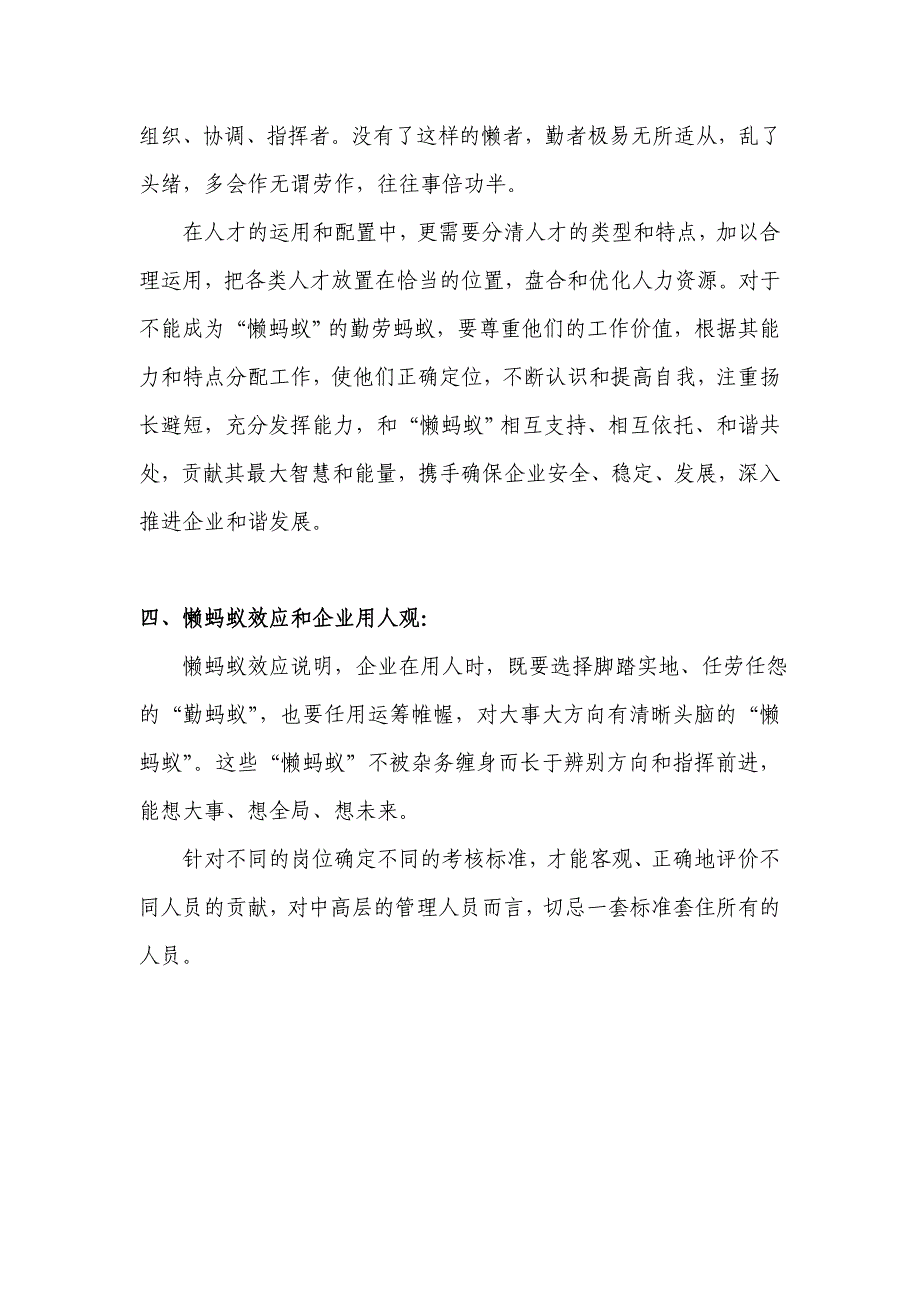 组织、协调、指挥者。没有了这样的懒者，勤者极易无所适从，乱了
头绪，多会作无谓劳作，往往事倍功半。
在人才的运用和配置中，更需要分清人才的类型和特点，加以合
理运用，把各类人才放置在恰当的位置，盘合和优化人力资源。对于
不能成为“懒蚂蚁”的勤劳蚂蚁，要尊重他们的工作价值，根据其能
力和特点分配工作，使他们正确定位，不断认识和提高自我，注重扬
长避短，充分发挥能力，和“懒蚂蚁”相互支持、相互依托、和谐共
处，贡献其最大智慧和能量，携手确保企业安全、稳定、发展，深入
推进企业和谐发展。
四、懒蚂蚁效应和企业用人观：
懒蚂蚁效应说明，企业在用人时，既要选择脚踏实地、任劳任怨
的“勤蚂蚁”，也要任用运筹帷幄，对大事大方向有清晰头脑的“懒
蚂蚁”。这些“懒蚂蚁”不被杂务缠身而长于辨别方向和指挥前进，
能想大事、想全局、想未来。
针对不同的岗位确定不同的考核标准，才能客观、正确地评价不
同人员的贡献，对中高层的管理人员而言，切忌一套标准套住所有的
人员。